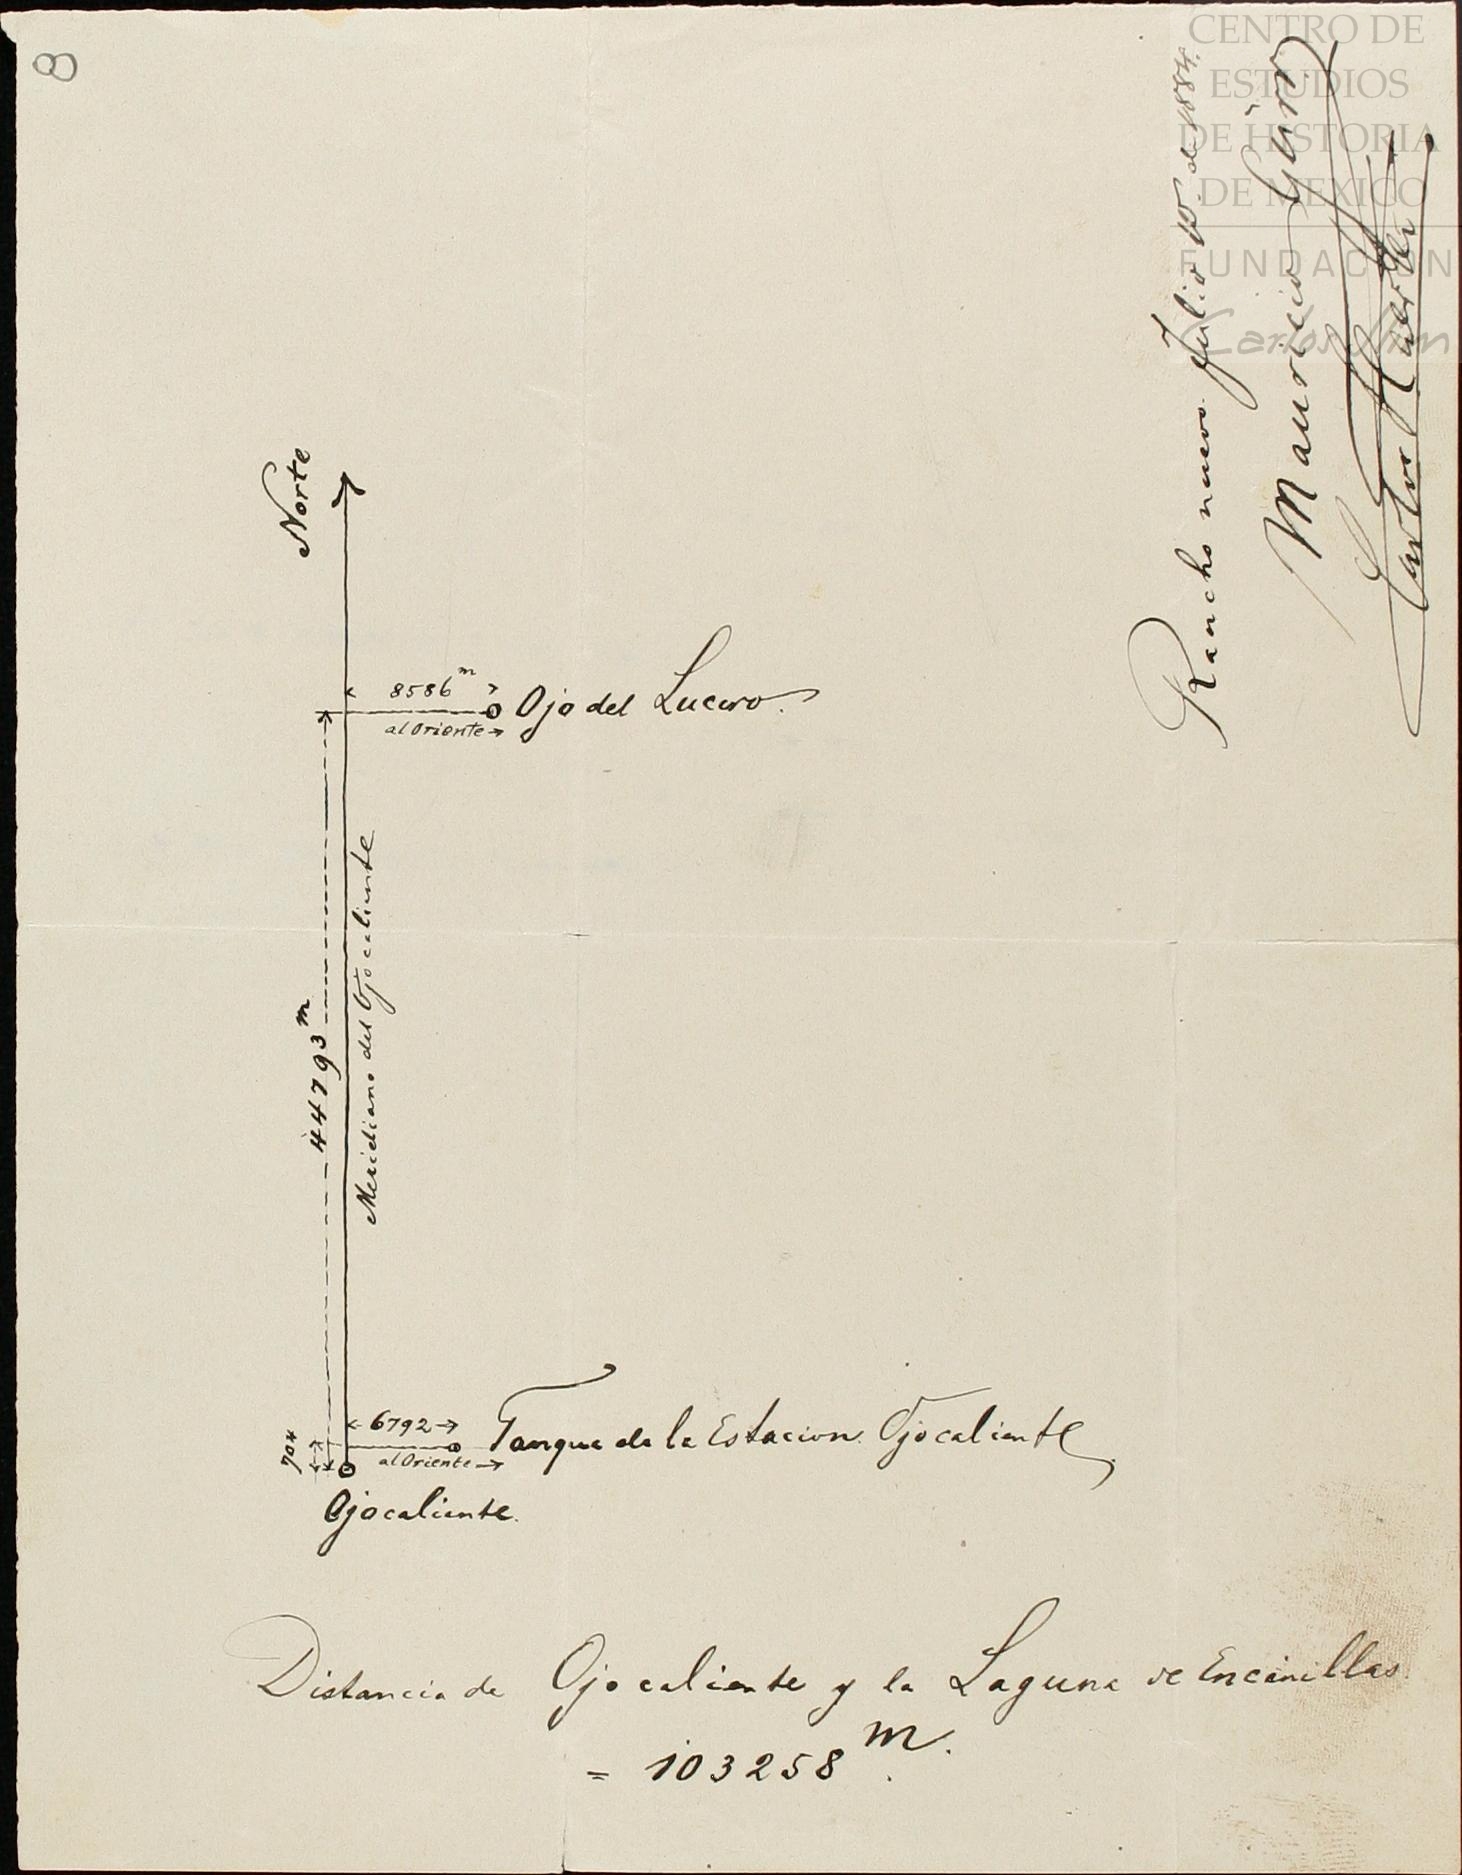 8
CENTRO DE
ESTUDIOS
DE HISTORIA
DE MEXICO
FUNDACIÓN
Carlos Slim
Rancho nuevo Julio 15. de 1884.
Mauricio
Carlos
Norte
8586 m
Ojo del Lucero.
al Oriente
44793 m
Meridiano del Ojocaliente
6792
Tanque de la Estacion Ojocaliente
al Oriente
704
Ojocaliente.
Distancia de Ojocaliente y la Laguna de Encinillas.
= 103258 m.